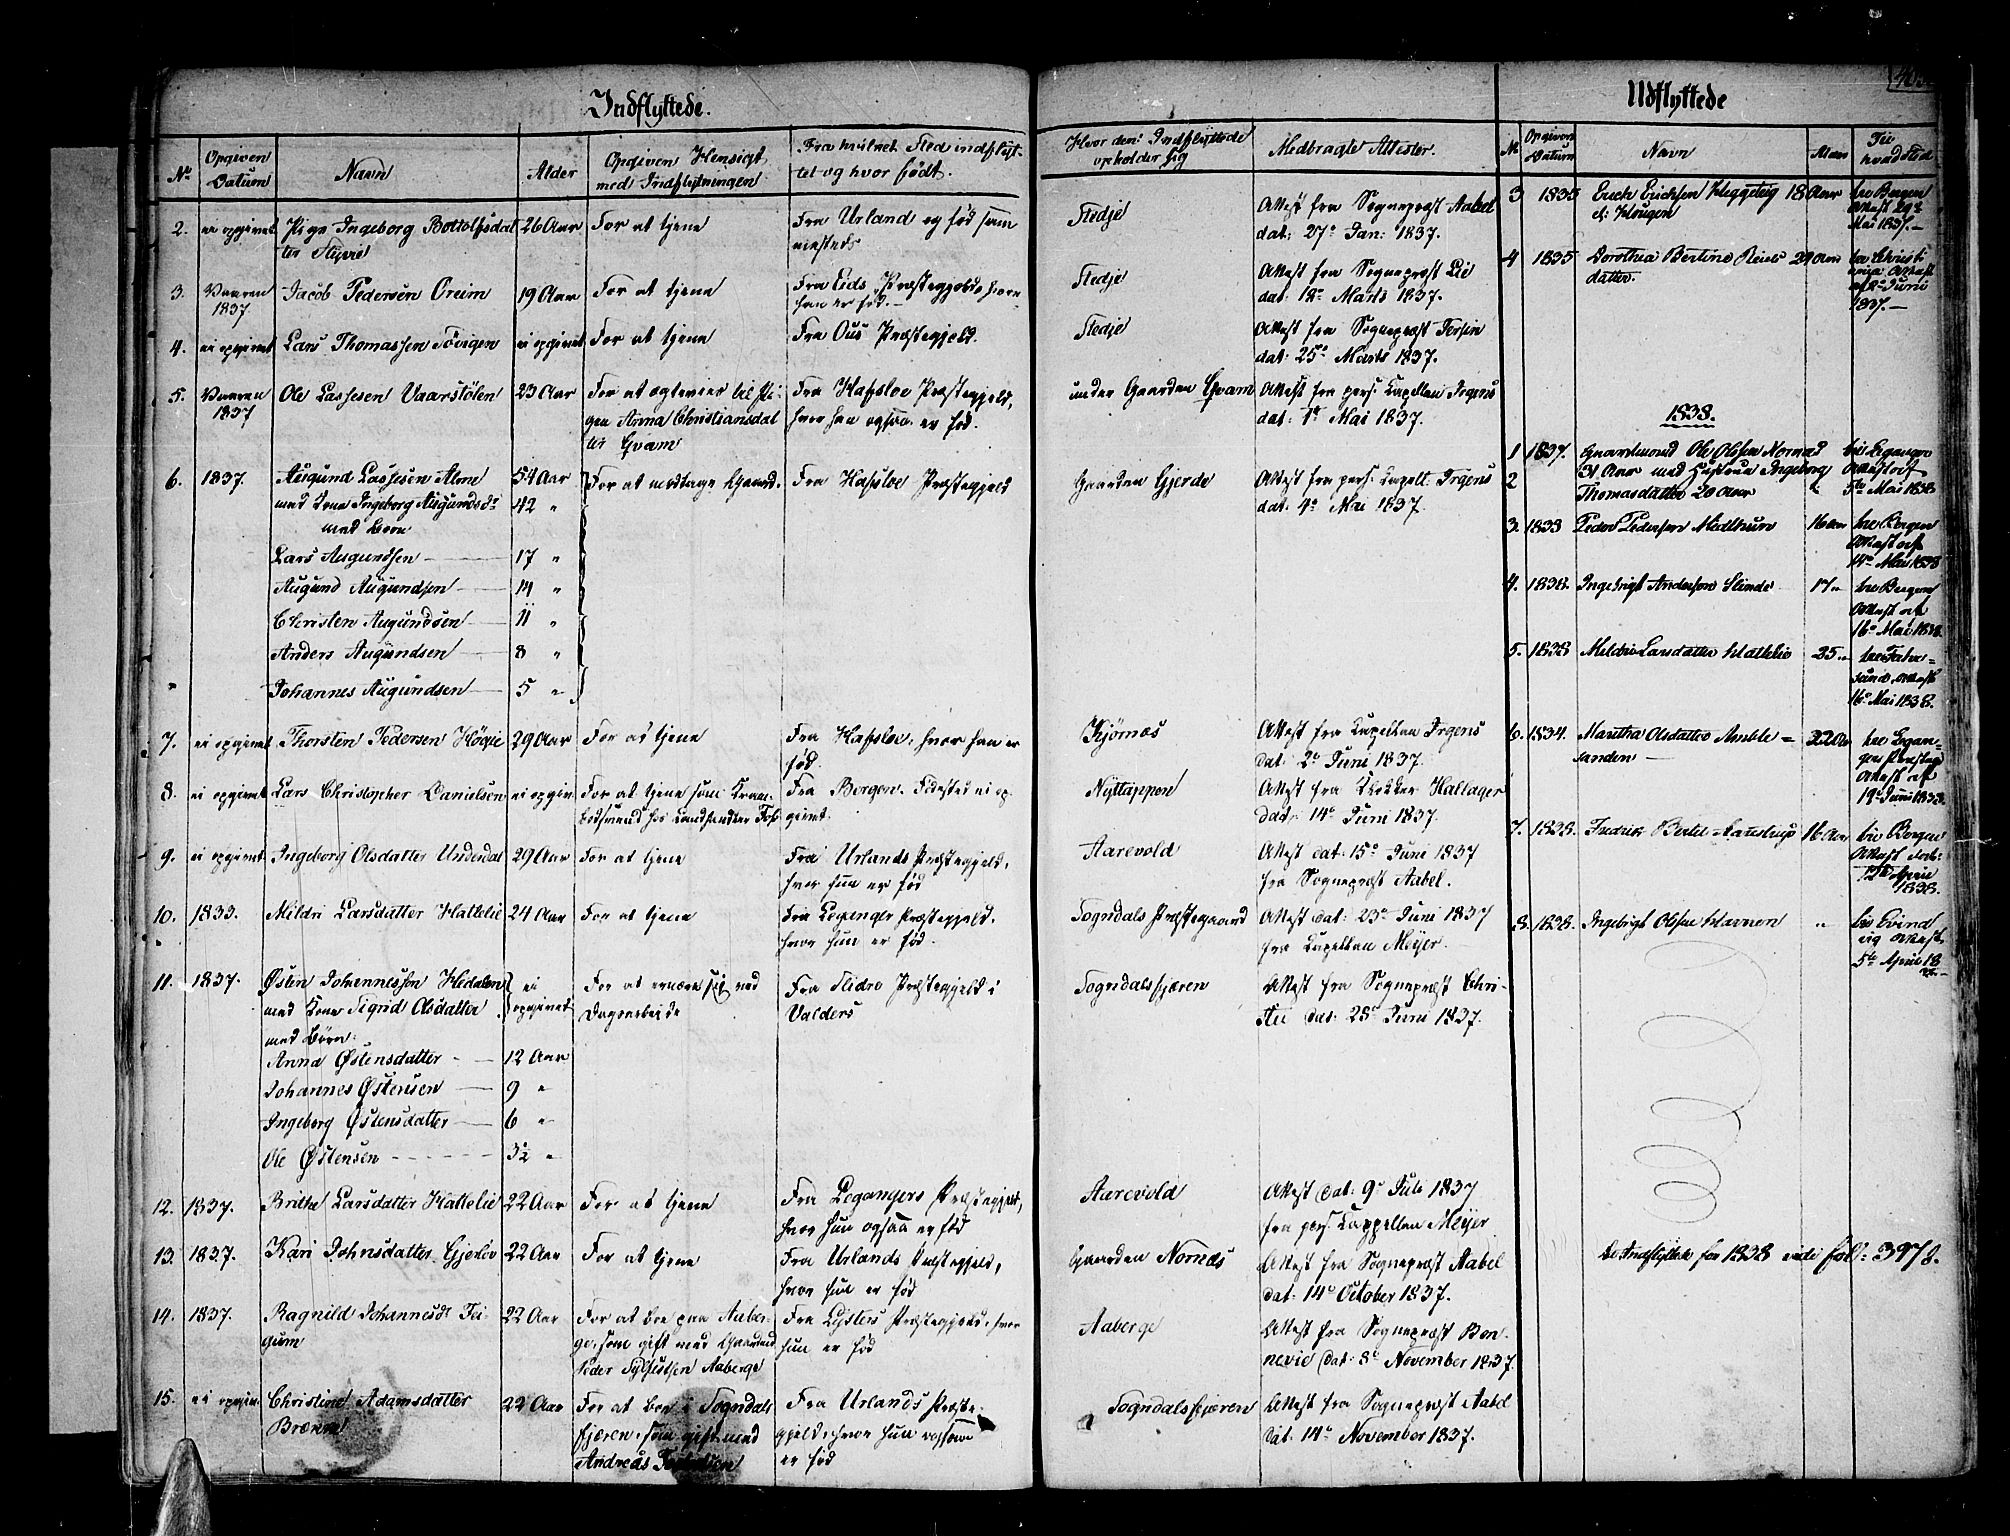 Indflyttede.
No
Opgiven Datum
Navn
Alder
Opgiven Hensigt med Indflytningen
Fra hvilket Sted indflyttet og hvor født.
2. ei opgivet Pige Ingeborg Bottolfsdat 26 Aar For at tjene Fra Urland og fød sam
ter Styvie niesteds
3. Vaaren Jacob Pedersen Oreim 19 Aar For at tjene Fra Eids Præstegjeld hvor
1837. han er fød.
4. ei opgivet Lars Thomassen Tövigen ei opgivet For at tjene Fra Ous Præstegjeld.
5. Vaaren Ole Lassesen Vaarstölen 23 Aar For at ægtevie til Pi- Fra Hafsloe Præstegjeld,
1837 gen Anna Christiansdat hvor han ogsaa er fød.
ter Qvam
6. 1837. Augund Lassesen Alme 54 Aar For at modtage Gaard. Fra Hafsloe Præstegjeld
med Kone Ingeborg Augundsdr 42 "
med Børn
Lars Augundsen 17 "
Augund Augundsen 14 "
Christen Augundsen 11 "
Anders Augundsen 8 "
Johannes Augundsen 5 "
7. ei opgivet Thorsten Pedersen Høgie 29 Aar For at tjene Fra Hafsloe, hvor han er
fød.
8. ei opgivet Lars Christopher Danielsen ei opgivet For at tjene som Kram- Fra Bergen. Fødested ei op-
bodsvend hos Landhandler givet.
9. ei opgivet Ingeborg Olsdatter Underdal 29 Aar For at tjene Fra Urlands Præstegjeld,
hvor hun er fød
10. 1833. Mildri Larsdatter Hattelie 24 Aar For at tjene Fra Leganger Præstegjeld.
hvor hun er fød.
11. 1837. Østen Johannessen Hedalen ei For at ernære sig ved Fra Slidre Præstegjeld i
med Kone Sigrid Olsdatter opgivet Dagarbeide Valders
med Børn:
Anna Østensdatter 12 Aar
Johannes Østensen 9 "
Ingeborg Østensdatter 6 "
Ole Østensen 3½ "
12. 1837. Brithe Larsdatter Hattelie 22 Aar For at tjene Fra Legangers Præstegjeld,
hvor hun ogsaa er fød
13. 1837. Kari Johnsdatter Gjerløv 22 Aar For at tjene Fra Urlands Præstegjeld,
hvor hun er fød
14. 1837. Ragnild Johannesdr Fei- 22 Aar For at boe paa Aaber- Fra Lysters Præstegjeld, hvor
gum ge, som gift med Gaardmd hun er fød
Peder Sylfestsen Aaberge
15. ei opgiv. Christine Adamsdatter 22 Aar For at boe i Sogndals Fra Urlands Præste-
fjæren, som gift med gjeld, hvor hun ogsaa
Andreas er fød
Hvor den Indflyttede opholder sig
Medbragte Attester.
Stedje Attest fra Sognepræst Aabel
dat: 27de Jan: 1837.
Stedje Attest fra Sognepræst Lie
dat: 18de Marts 1837.
Stedje Attest fra Sognepræst
dat: 25de Marts 1837.
under Gaarden Qvam Attest fra pers: Capellan Irgens
dat: 1ste Mai 1837.
Gaarden Gjerde Attest fra pers: Capell: Irgens
dat: 4de Mai 1837.
Kjørnæs Attest fra Capellan Irgens
dat: 2de Juni 1837.
Nyttappen Attest fra Klokker Hallager
dat: 14de Juni 1837.
Aarevold Attest dat: 15de Juni 1837
fra Sognepræst Aabel.
Sogndals Præstegaard Attest dat: 23de Juni 1837
fra Capellan Meyer.
Sogndalsfjæren Attest fra Sognepræst Chri-
stie dat: 28de Juni 1837.
Aarevold Attest dat: 9de Juli 1837
fra pers: Cappellan Meyer
Gaarden Nornæs Attest fra Sognepræst Aabel
dat: 14de October 1837.
Aaberge Attest fra Sognepræst Bon-
nevie dat: 8de November 1837.
Sogndalsfjæren Attest fra Sognepræst Aabel
dat: 14de November 1837.
Udflyttede
N.
Opgiven Datum
Navn
Alder
Til hvad Sted
3 1835 Erich Erichsen 18 Aar til Bergen
Attest 29de
Mai 1837.
4 1835 Dorothea Bertine 24 Aar til Christi
datter. ania Attest
Juni
1837.
1838.
1 1837. Gaardmand Ole Olsen Nornæs til Leganger
2 31 Aar med Hustrue Ingeborg Attest af
Thomasdatter 20 Aar 5te Mai 1838
3. 1833 Peder Pedersen 16 Aar til Bergen
Attest af
14de Mai 1838
4. 1838. Ingebrigt Anderson Slinde 17 " til Bergen
Attest af
16de Mai 1838.
5. 1838 Mildri Larsdatter Hattelie 25 "
Attest
16de Mai 1838.
6. 1834. Maritha Olsdatter Amble = 22 Aar til Legan-
sanden gers Præsteg
Attest af
19de Juni 1838.
7. 1838. Fredrik Bertel 16 Aar til Bergen
Attest dat:
April
1838.
8. 1838. Ingebrigt Olsen " til Evind
vig Attest
5te April 18
38.
De Indflyttede for 1838 vide fol: 397 b.